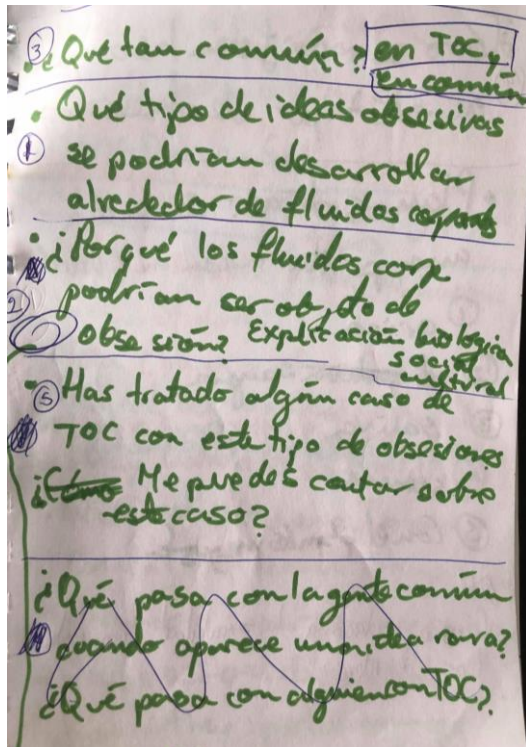 ③ • ¿Qué tan común? en TOC,
en común
• Qué tipo de ideas obsesivas
① se podrían desarrollar
alrededor de fluidos corporales
• ¿Porqué los fluidos corp
② podrían ser objeto de
obsesión? Explicación biológica
social
cultural
• ⑤ Has tratado algún caso de
TOC con este tipo de obsesiones
¿Cómo Me puedes contar sobre
este caso?
¿Qué pasa con la gente común
cuando aparece una idea rara?
¿Qué pasa con alguien con TOC?